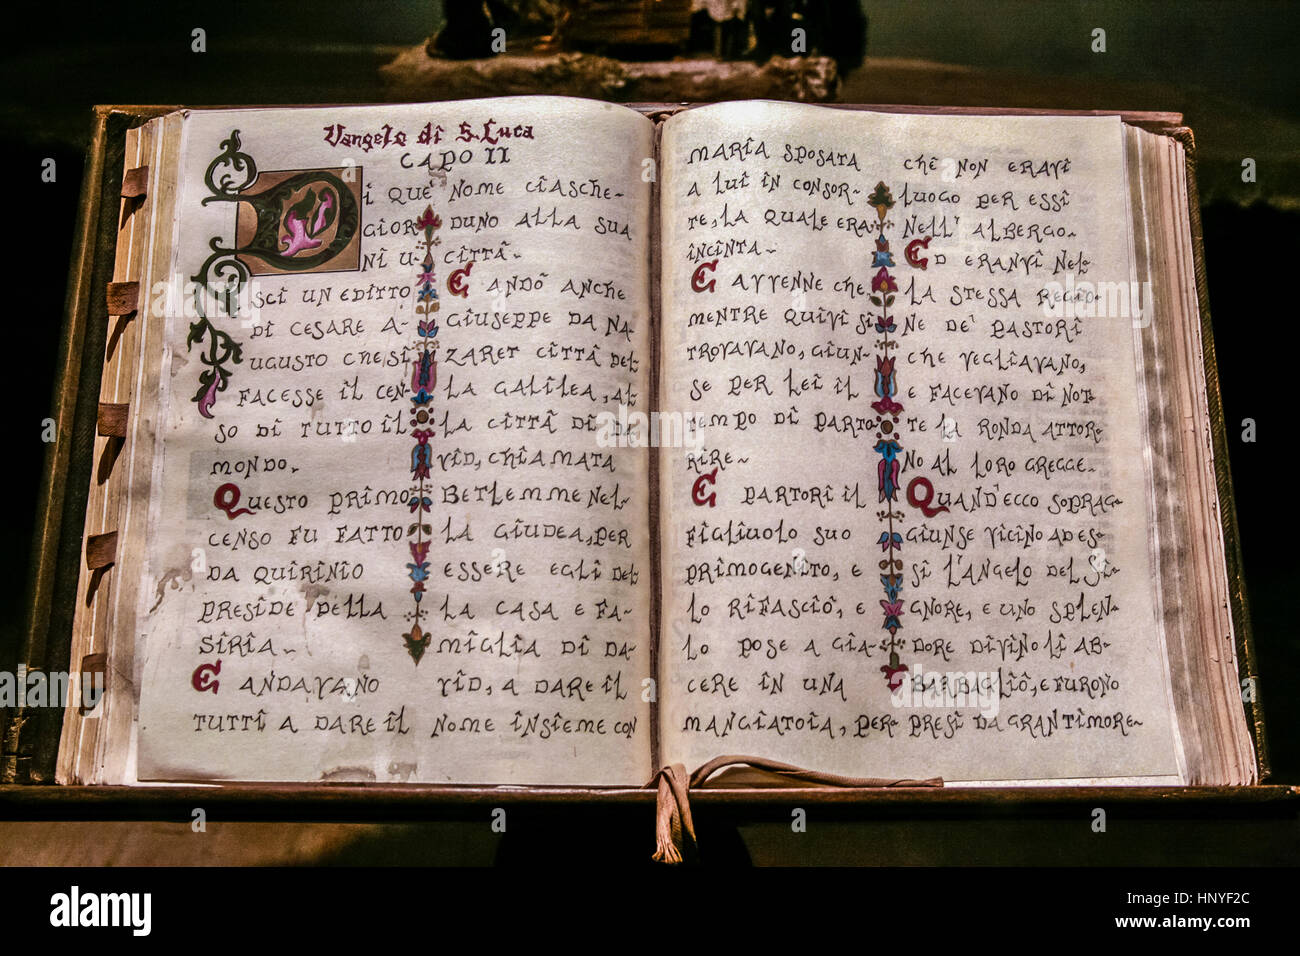 Vangelo di S. Luca
CAPO II
I QUE'
GIOR
NI U-
SCI UN EDITTO
DI CESARE A-
UGUSTO CHE SI
FACESSE IL CEN-
SO DI TUTTO IL
MONDO.
QUESTO PRIMO
CENSO FU FATTO
DA QUIRINIO
PRESIDE DELLA
SIRIA.
E ANDAVANO
TUTTI A DARE IL
NOME CIASCHE-
DUNO ALLA SUA
CITTÀ.
E ANDÒ ANCHE
GIUSEPPE DA NA
ZARET CITTÀ DEL
LA GALILEA, AL
LA CITTÀ DI DA
VID, CHIAMATA
BETLEMME NEL-
LA GIUDEA, PER
ESSERE EGLI DEL
LA CASA E FA-
MIGLIA DI DA-
VID, A DARE IL
NOME INSIEME CON
MARIA SPOSATA
A LUI IN CONSOR-
TE, LA QUALE ERA
INCINTA.
E AVVENNE CHE
MENTRE QUIVI SI
TROVAVANO, GIUN-
SE PER LEI IL
TEMPO DI PARTO-
RIRE.
E PARTORÌ IL
FIGLIUOLO SUO
PRIMOGENITO, E
LO RIFASCIÒ, E
LO POSE A GIA-
CERE IN UNA
MANGIATOIA, PER-
CHÈ NON ERAVI
LUOGO PER ESSI
NELL' ALBERGO.
ED ERANVI NEL-
LA STESSA REGIO-
NE DE' PASTORI
CHE VEGLIAVANO,
E FACEVANO DI NOT-
TE LA RONDA ATTOR-
NO AL LORO GREGGE.
QUAND'ECCO SOPRAG-
GIUNSE VICINO AD ES-
SI L'ANGELO DEL SI-
GNORE, E UNO SPLEN-
DORE DIVINO LI AB-
BARBAGLIÒ, E FURONO
PRESI DA GRAN TIMORE
alamy
Image ID: HNYF2C
www.alamy.com